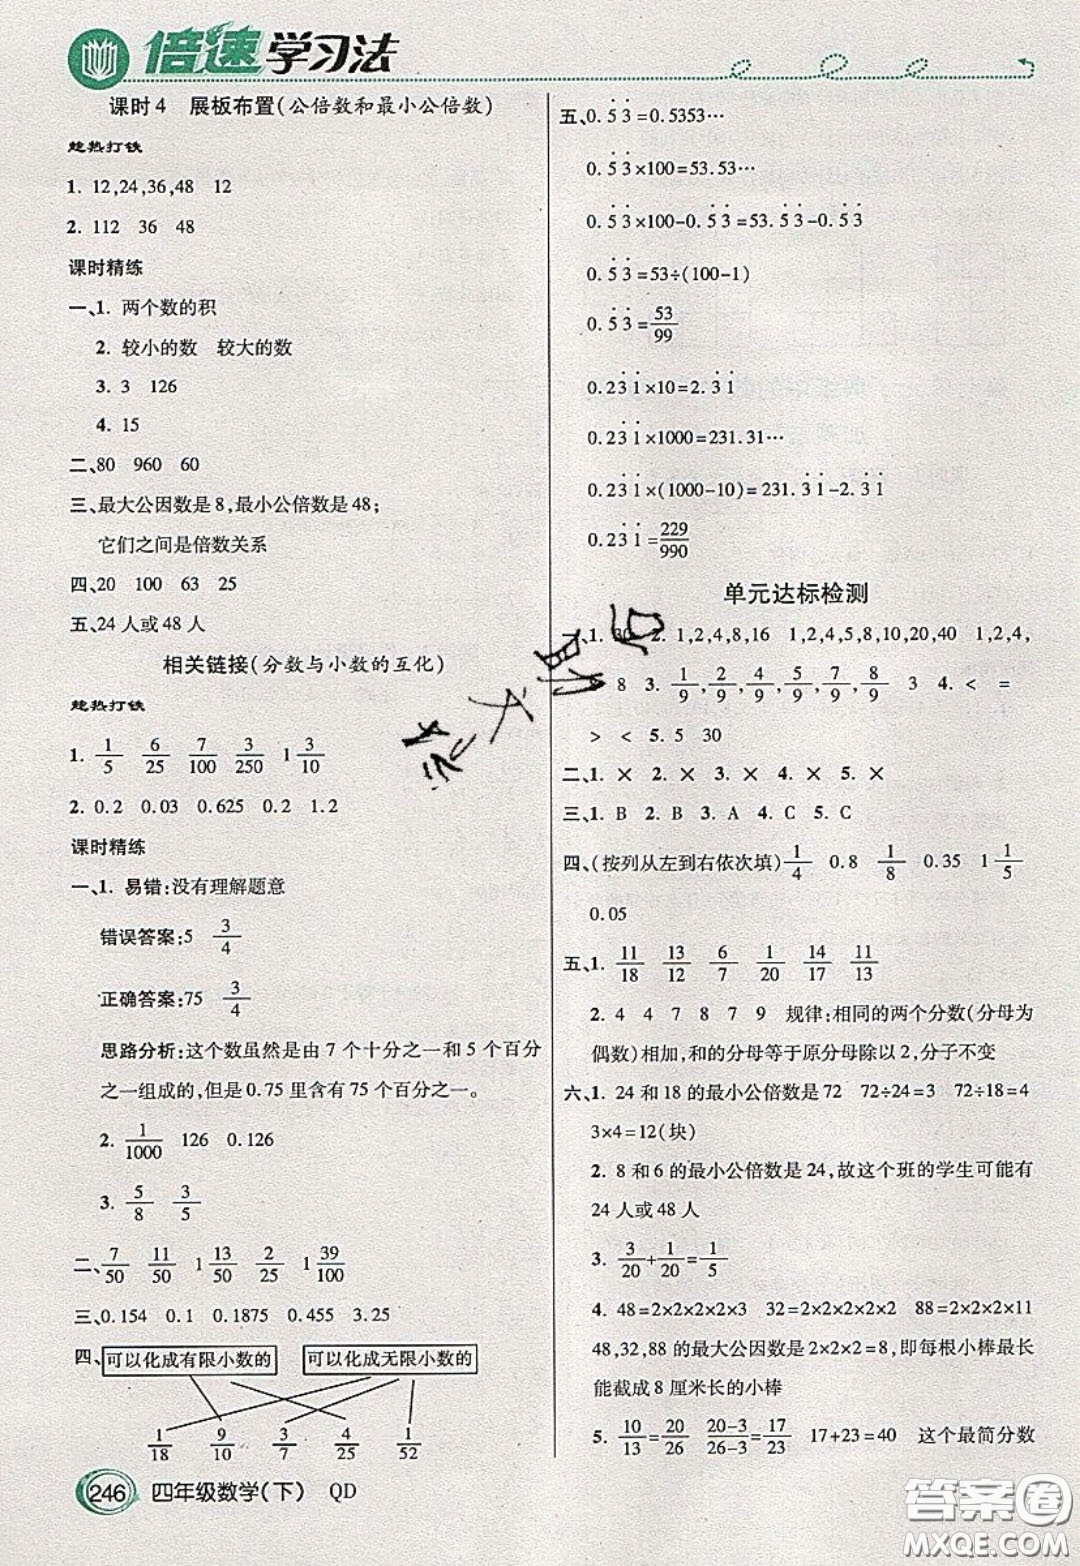 倍速学习法
课时4 展板布置(公倍数和最小公倍数)
趁热打铁
1. 12,24,36,48 12
2. 112 36 48
课时精练
一、1. 两个数的积
2. 较小的数 较大的数
3. 3 126
4. 15
二、80 960 60
三、最大公因数是8,最小公倍数是48;
它们之间是倍数关系
四、20 100 63 25
五、24人或48人
相关链接(分数与小数的互化)
趁热打铁
1. 1/5 6/25 7/100 3/250 1 3/10
2. 0.2 0.03 0.625 0.2 1.2
课时精练
一、1. 易错:没有理解题意
错误答案:5 3/4
正确答案:75 3/4
思路分析:这个数虽然是由7个十分之一和5个百分
之一组成的,但是0.75里含有75个百分之一。
2. 1/1000 126 0.126
3. 5/8 3/5
二、7/50 11/50 1 13/50 2/25 1 39/100
三、0.154 0.1 0.1875 0.455 3.25
四、可以化成有限小数的 可以化成无限小数的
1/18 9/10 3/7 4/25 1/52
246 四年级数学(下) QD
五、0.5̇3̇=0.5353…
0.5̇3̇×100=53.53…
0.5̇3̇×100-0.5̇3̇=53.5̇3̇-0.5̇3̇
0.5̇3̇=53÷(100-1)
0.5̇3̇=53/99
0.23̇1̇×10=2.3̇1̇
0.23̇1̇×1000=231.31…
0.23̇1̇×(1000-10)=231.3̇1̇-2.3̇1̇
0.23̇1̇=229/990
单元达标检测
一、1. 30 2. 1,2,4,8,16 1,2,4,5,8,10,20,40 1,2,4,
8 3. 1/9,2/9,4/9,5/9,7/9,8/9 3 4. < =
> < 5. 5 30
二、1. × 2. × 3. × 4. × 5. ×
三、1. B 2. B 3. A 4. C 5. C
四、(按列从左到右依次填)1/4 0.8 1/8 0.35 1 1/5
0.05
五、1. 11/18 13/12 6/7 1/20 14/17 11/13
2. 4 4 7 8 7 9 规律:相同的两个分数(分母为
偶数)相加,和的分母等于原分母除以2,分子不变
六、1. 24和18的最小公倍数是72 72÷24=3 72÷18=4
3×4=12(块)
2. 8和6的最小公倍数是24,故这个班的学生可能有
24人或48人
3. 3/20+1/20=1/5
4. 48=2×2×2×2×3 32=2×2×2×2×2 88=2×2×2×11
48,32,88的最大公因数是2×2×2=8,即每根小棒最长
能截成8厘米长的小棒
5. 10/13=20/26 20-3/26-3=17/23 17+23=40 这个最简分数
答案圈
MXQE.COM